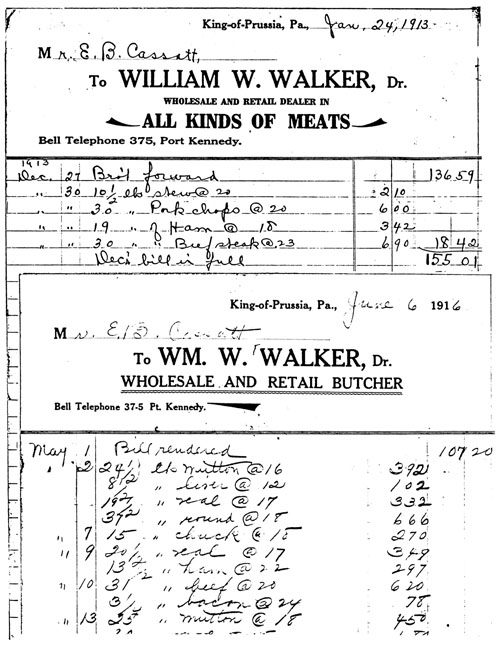 King-of-Prussia, Pa., Jan. 24, 1913
Mr. E. B. Cassatt,
To WILLIAM W. WALKER, Dr.
WHOLESALE AND RETAIL DEALER IN
ALL KINDS OF MEATS
Bell Telephone 375, Port Kennedy.
1913
Dec. 27 Bro't forward 136 59
" 30 10½ lb stew @ 20 2 10
" " 30 " Pork chops @ 20 6 00
" " 19 " of Ham @ 18 3 42
" " 30 " Beef steak @ 23 6 90 18 42
Dec's bill in full 155 01
King-of-Prussia, Pa., June 6 1916
Mr. E. B. Cassatt
To WM. W. WALKER, Dr.
WHOLESALE AND RETAIL BUTCHER
Bell Telephone 37-5 Pt. Kennedy.
May 1 Bill rendered 107 20
" 2 24½ lb mutton @ 16 392
8½ " liver @ 12 102
19½ " veal @ 17 332
37½ " round @ 18 666
" 7 15 " chuck @ 18 270
" 9 20½ " veal @ 17 349
13½ " ham @ 22 297
" 10 31 " beef @ 20 620
3¼ " bacon @ 24 78
" 13 25 " mutton @ 18 450